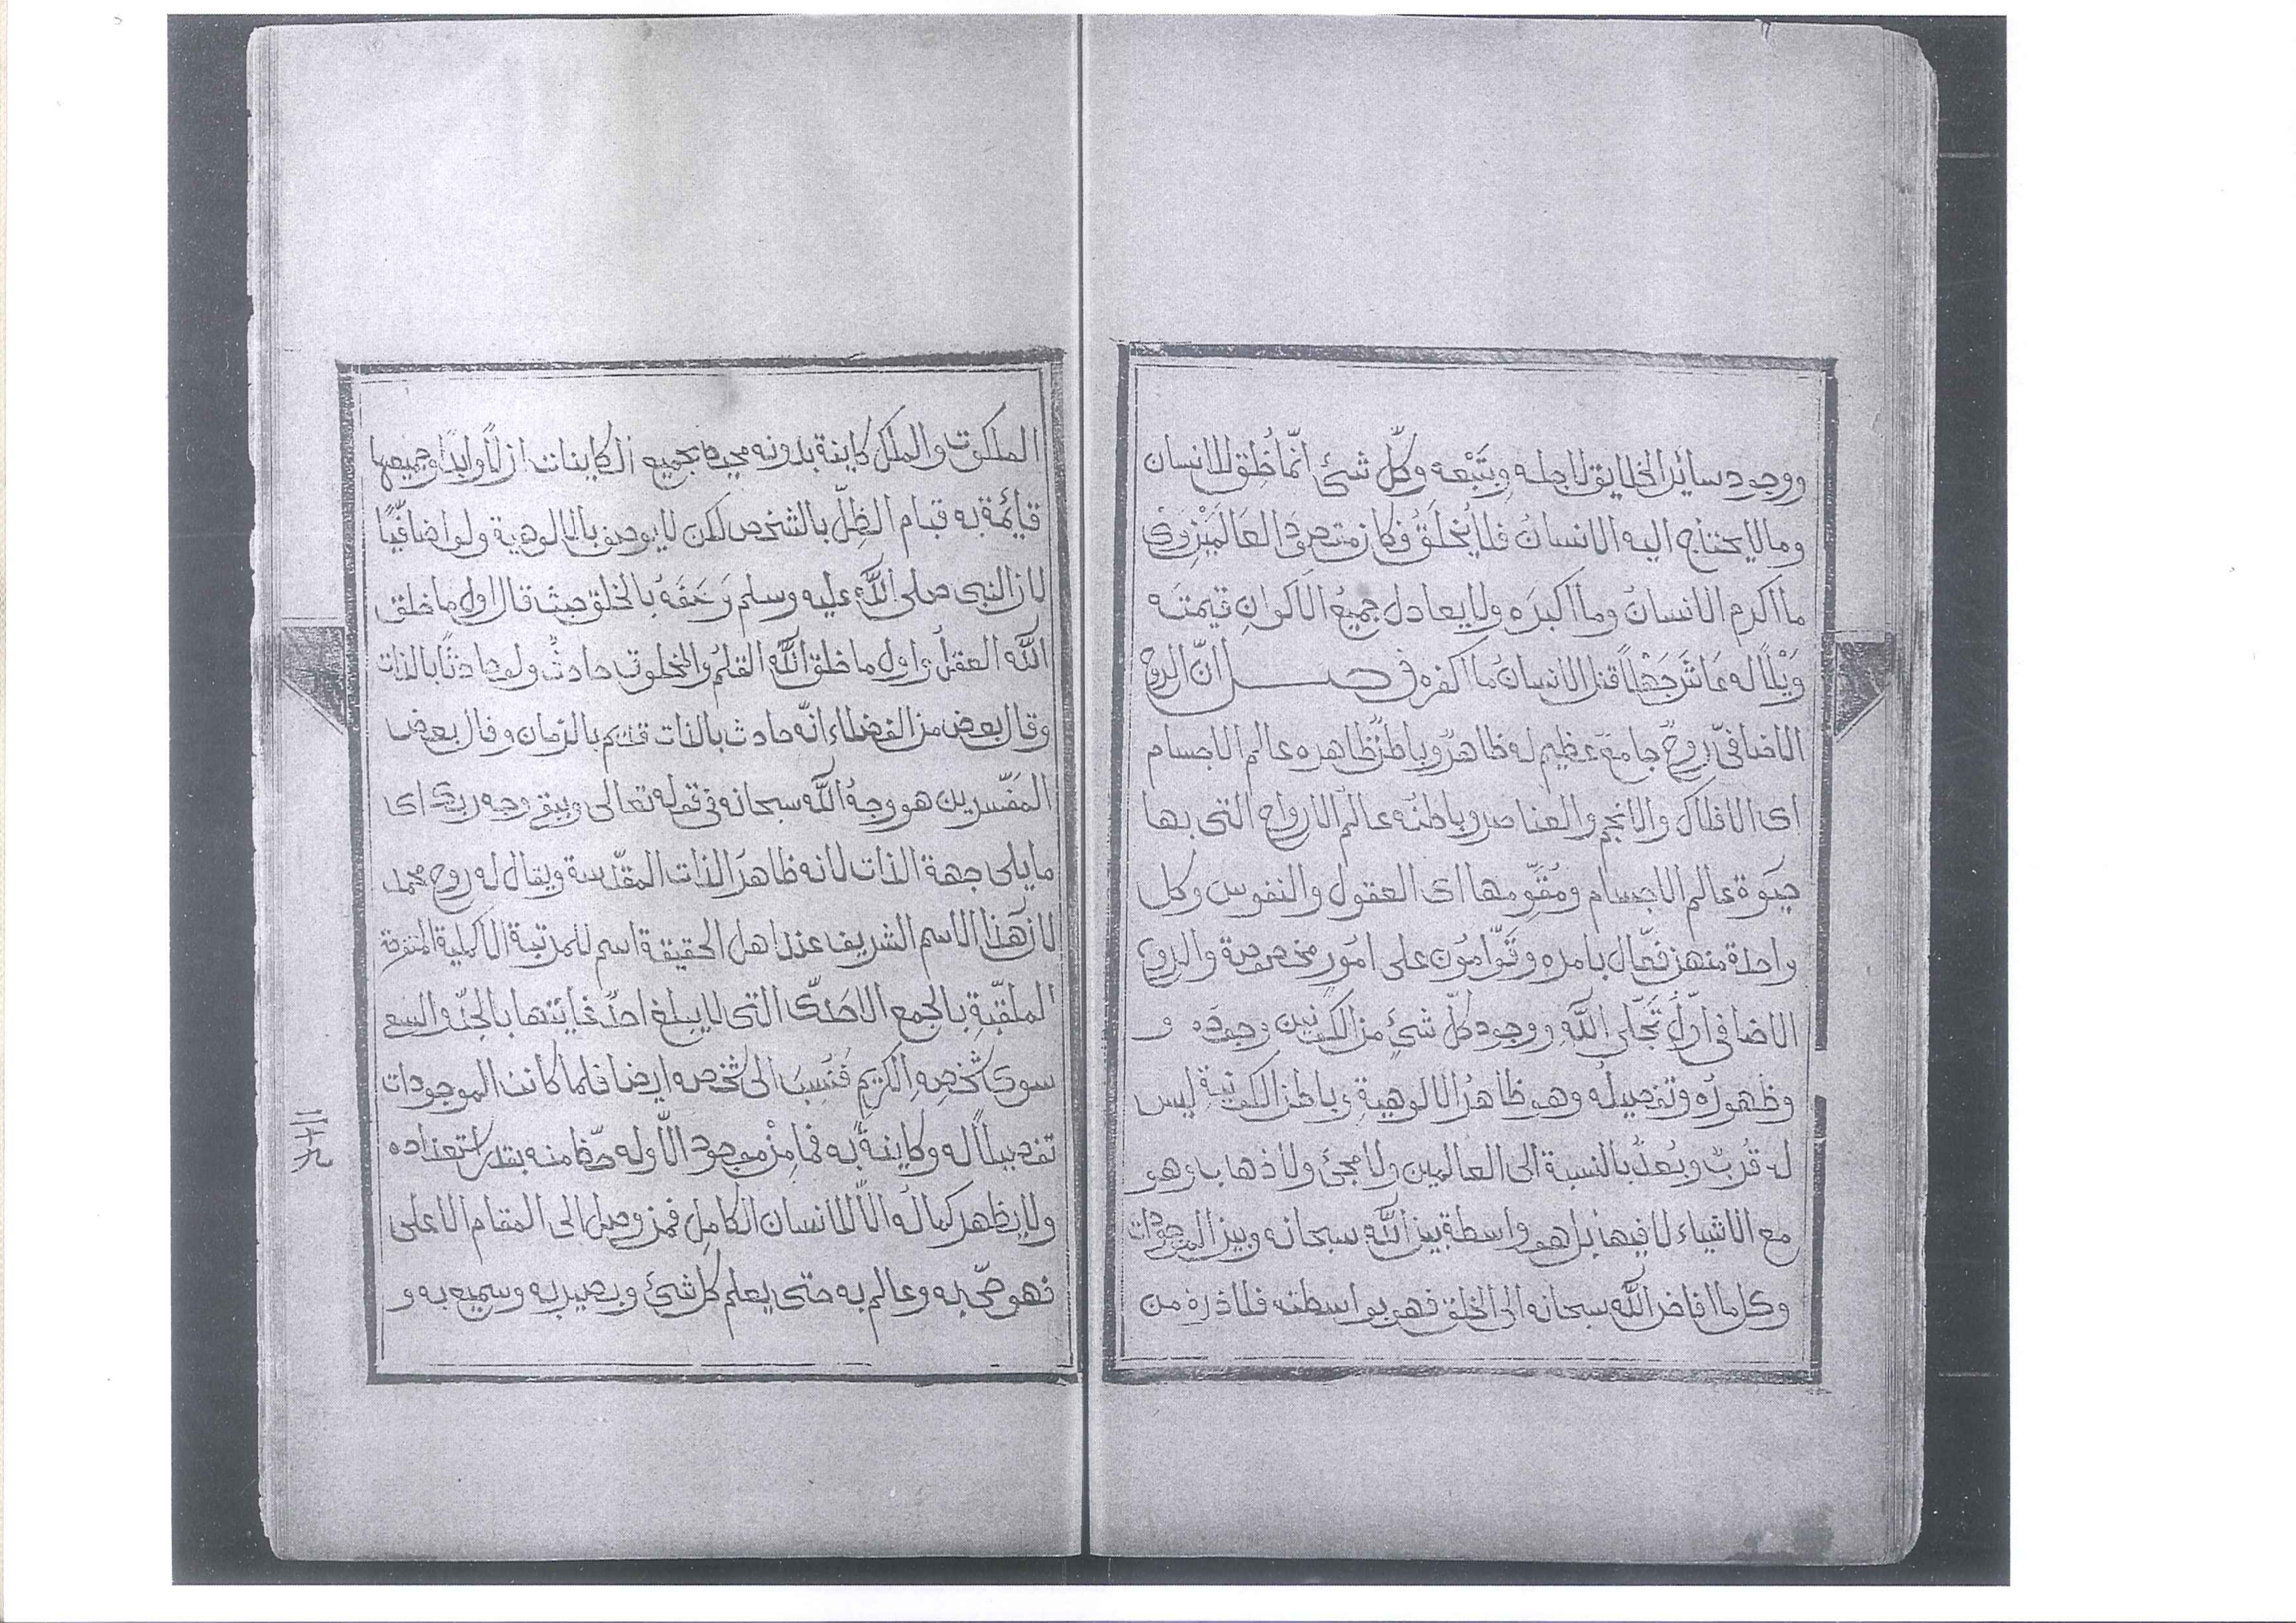 ووجود سائر الخلايق لاجله وبتبعه وكلّ شئ انّما خُلق للانسان
وما لا يحتاج اليه الانسانُ فلا يُخلَقُ فكان متصرف العالمين وى
ما اكرم الانسانُ وما اكبرَه ولا يعادل جميعُ الاكوانِ قيمتَه
وَيْلًا له جَهْلًا قتل الانسانُ ما اكفره فصـــل انّ الروح
الاضافىّ روحٌ جامعٌ عظيم له ظاهرٌ وباطنٌ ظاهره عالم الاجسام
اى الافلاك والانجم والعناصر وباطنُه عالم الارواح التى بها
حيوة عالم الاجسام ومُقوِّمها اى العقول والنفوس وكل
واحدة منهن فعّال بامره وقوّامون على امورٍ مخصوصة والروح
الاضافى اوّلُ تجلّى الله ووجود كلّ شئٍ من الكونين وجوده و
وظهورُه وتفصيلُه وهو ظاهرُ الالوهية وباطن الكونية ليس
له قُربٌ وبُعدٌ بالنسبة الى العالمين ولا مجئ ولا ذهاب وهو
مع الاشياء لا فيها بل هو واسطة بين الله سبحانه وبين الموجودات
وكلما افاض الله سبحانه الى الخلق فهو بواسطته فلا ذرة من
الملكوت والملك كاينة بدونه محيط بجميع الكاينات ازلًا وابدًا وجميعها
قائمة به قيام الظلّ بالشخص لكن لا يوصف بالالوهية ولو اضافيًّا
لان النبى صلى الله عليه وسلم وَصَفَهُ بالخلق حيث قال اول ما خلق
الله العقلُ واول ما خلق الله القلمُ والمخلوق حادثٌ ولو حادثًا بالذات
وقال بعض من الفضلاء انّه حادث بالذات قديم بالزمان وقال بعض
المفسّرين هو وجهُ الله سبحانه فى قوله تعالى ويبقى وجه ربك اى
ما يلى جهة الذات لانه ظاهرُ الذات المقدّسة ويقال له روح محمد
لان هذا الاسم الشريف عند اهل الحقيقة اسم للمرتبة الاكملية
الملقّبةِ بالجمع الاحدىّ التى لا يبلغ احدٌ غايتها بالجدّ والسعى
سوى شخصِهِ الكريم فنُسِبَ الى شخصه ايضا فلما كانت الموجودات
تفصيلًا له وكاينةً به فما مِنْ موجود الّا وله حظّا منه بقدر استعداده
ولا يظهر كماله الّا للانسان الكامل فمن وصل الى المقام الاعلى
فهو حىّ به وعالم به حتى يعلم كل شئ وبصير به وسميع به و